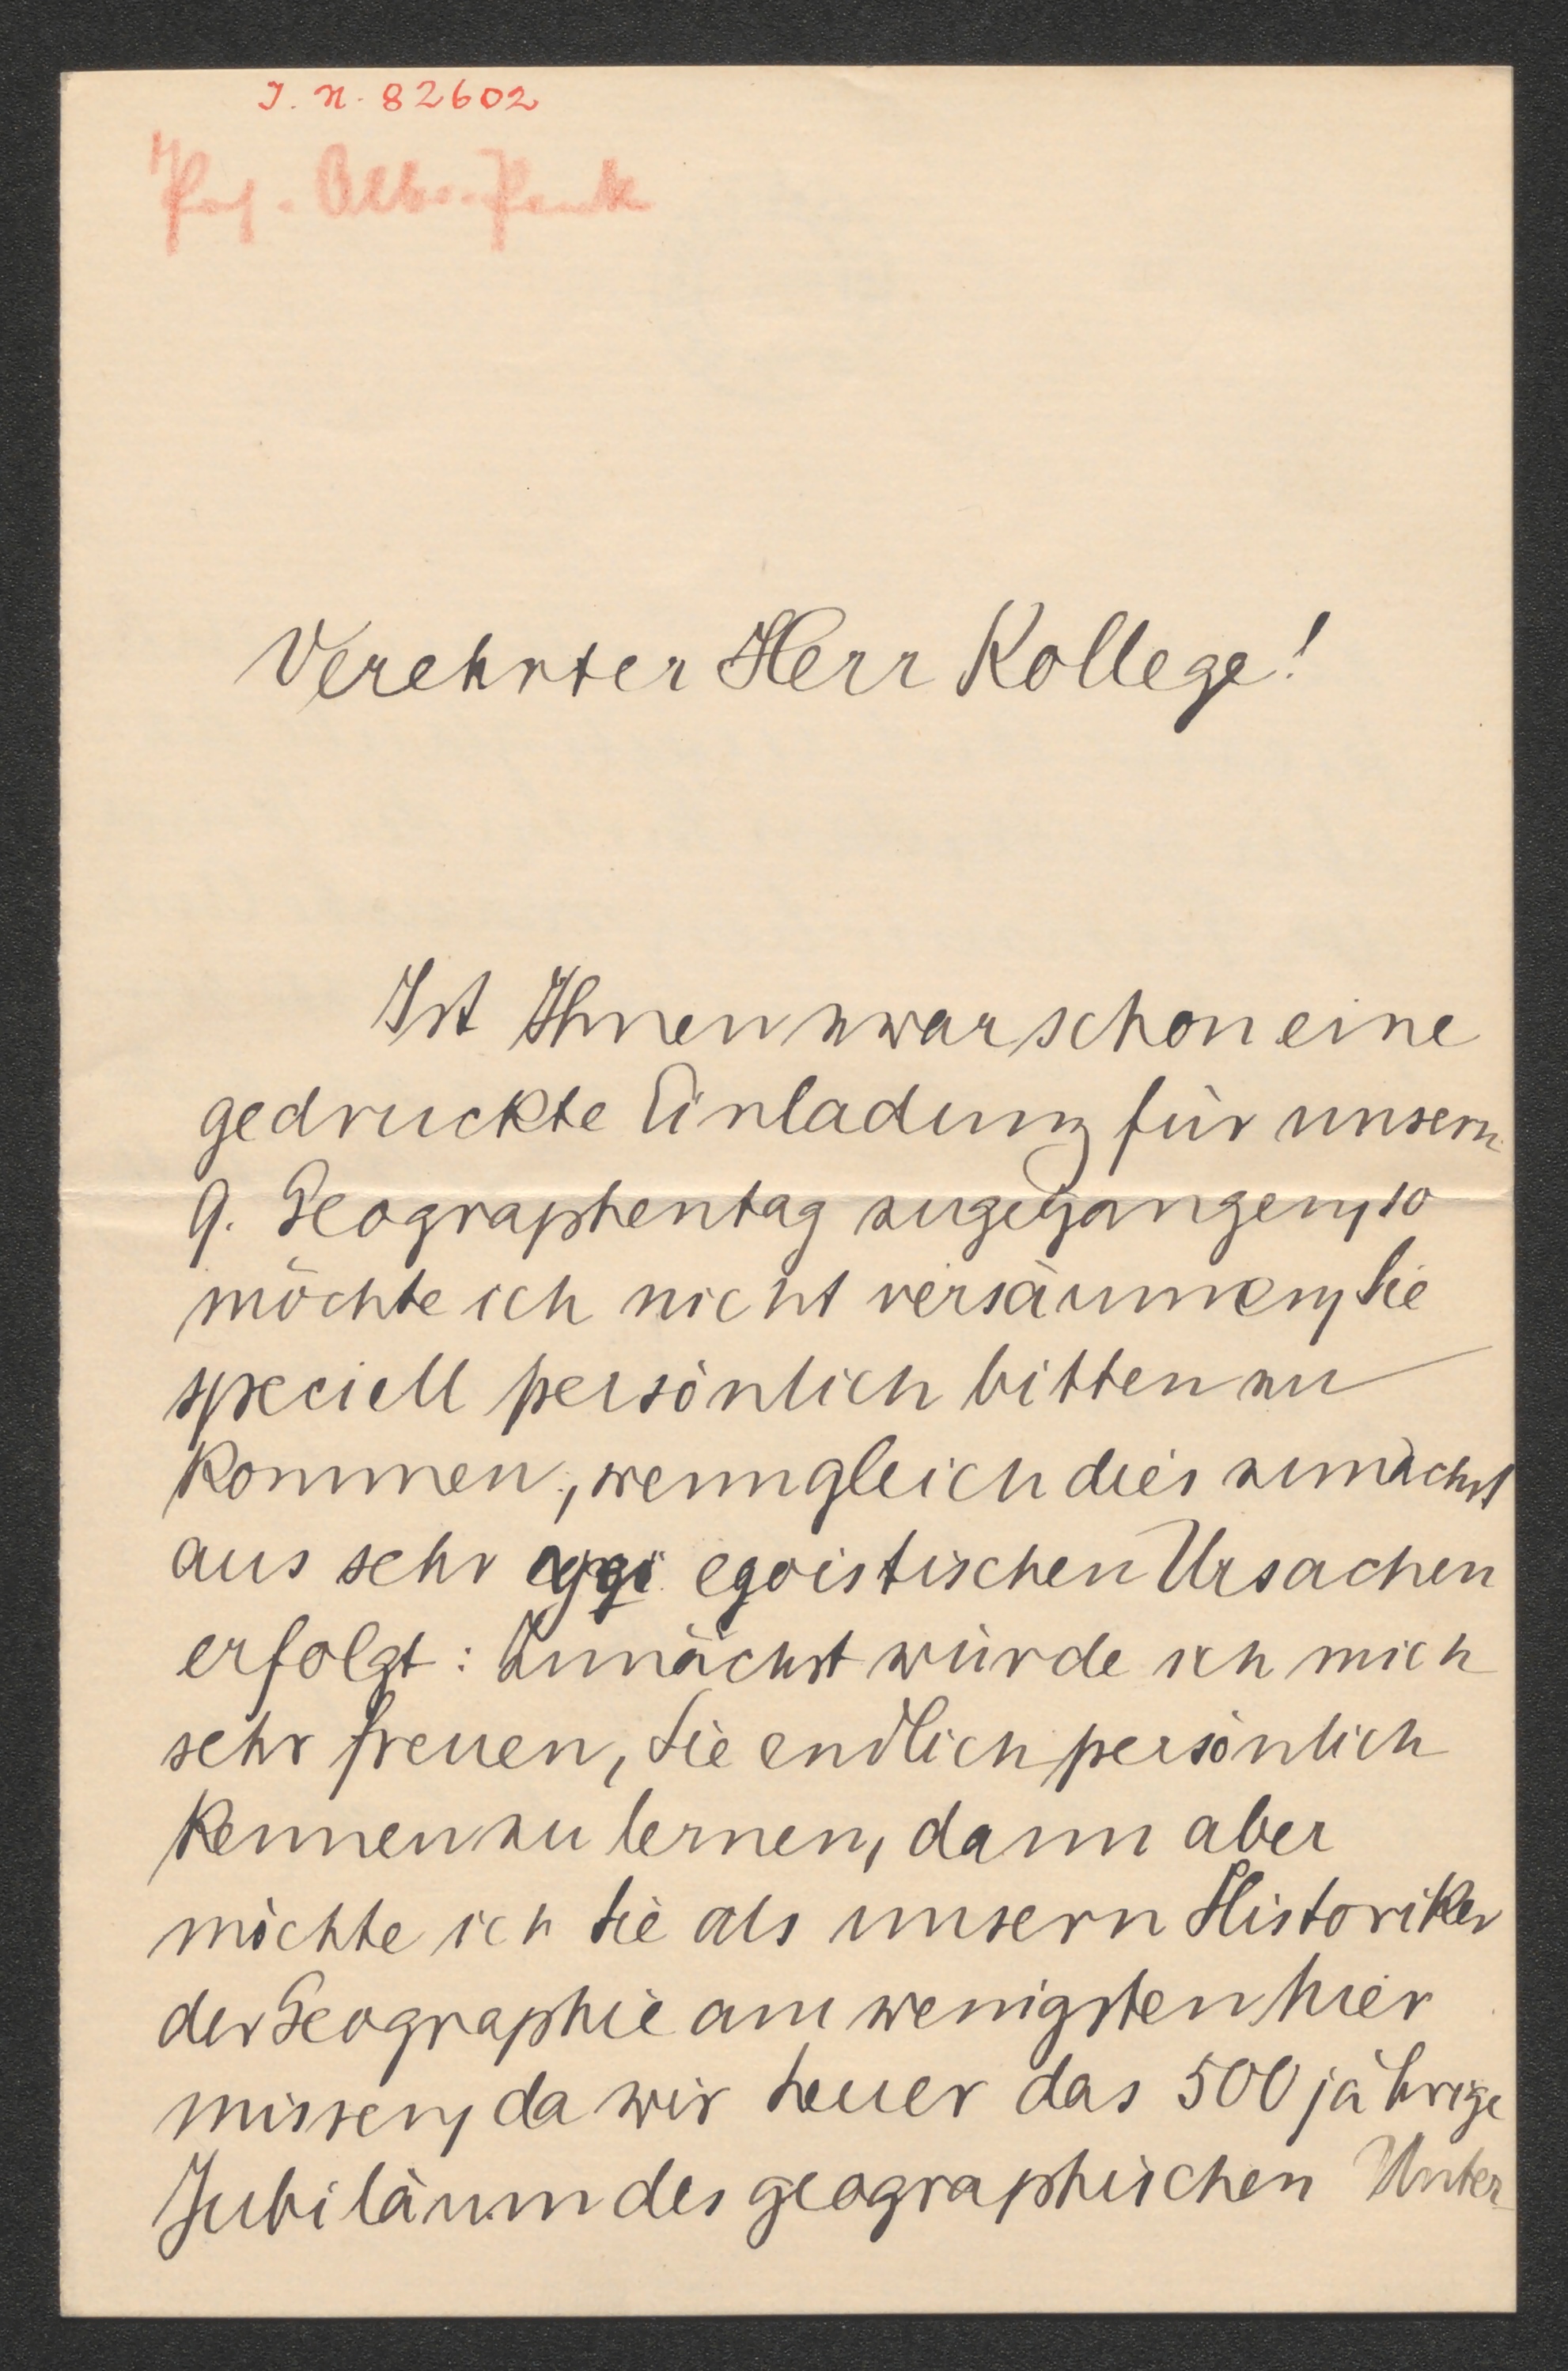 I. N. 82602
Prof. Albr. Penck
Verehrter Herr Kollege!
Ist Ihnen zwar schon eine
gedruckte Einladung für unsern
9. Geographentag zugegangen, so
möchte ich nicht versäumen, Sie
speciell persönlich bitten zu
kommen, wenngleich dies zunächst
aus sehr egoistischen Ursachen
erfolgt: Zunächst würde ich mich
sehr freuen, Sie endlich persönlich
kennen zu lernen, dann aber
möchte ich Sie als unsern Historiker
der Geographie am wenigsten hier
missen, da wir heuer das 500 jährige
Jubiläum des geographischen Unter-